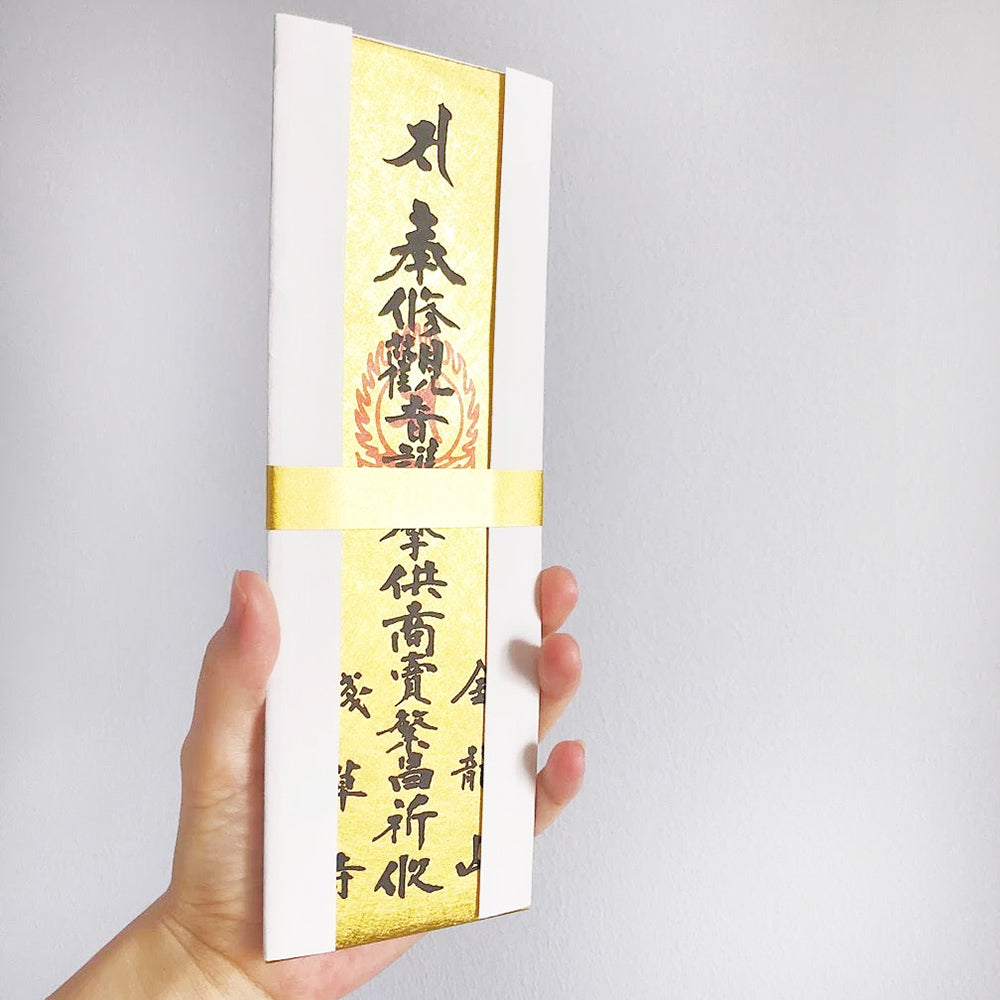 𑖭
奉修觀音護摩供商賣繁昌祈攸
金龍山
淺草寺